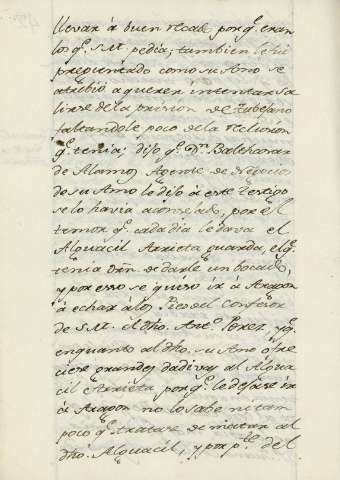 llevar á buen recado, porq.e eran
los q.e S.M. pedia; tambien le fue
preguntado como su Amo se
atribió a querer intentar sa
lirse de la prision de Turejano
faltandole poco de la reclusion
q.e tenia; dijo q.e Dn. Balthasar
de Alamos Agente de Negocios
de su Amo lo dijo á este Testigo
se lo havia aconsejado, por el
temor q.e cada dia le dava el
Alguacil Arrieta guarda, el q.e
tenia orn. de darle un bocado,
y por esso se quiso ir á Aragon
á echar á los Pies del Confesor
de S.M. el dho. Ant.o Perez, y q.e
en quanto al dho. su Amo ofre
ciese grandes dadivas al Algua
cil Arrieta porq.e le dejase ir
á Aragon no lo sabe ni tam
poco q.e tratase de matar al
dho. Alguacil, y por p.te del